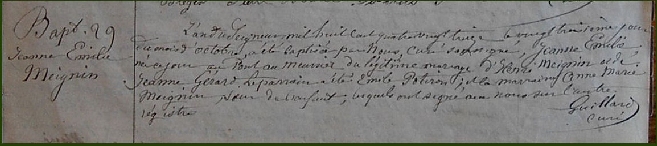 Bapt. 29
Jeanne Emilie
Meignin
L'an du Seigneur mil huit cent quatre vingt treize le vingt troisième jour
du mois d'octobre, a été baptisée par Nous, curé soussigné, Jeanne Emilie
née ce jour au Pont au meunier du légitime mariage d'Henri Meignin et de
Jeanne Gérard. Le parrain a été Emile Poitron, et la marraine Anne Marie
Meignin sœur de l'enfant, lesquels ont signé avec nous sur l'autre
registre
Guillard
Curé